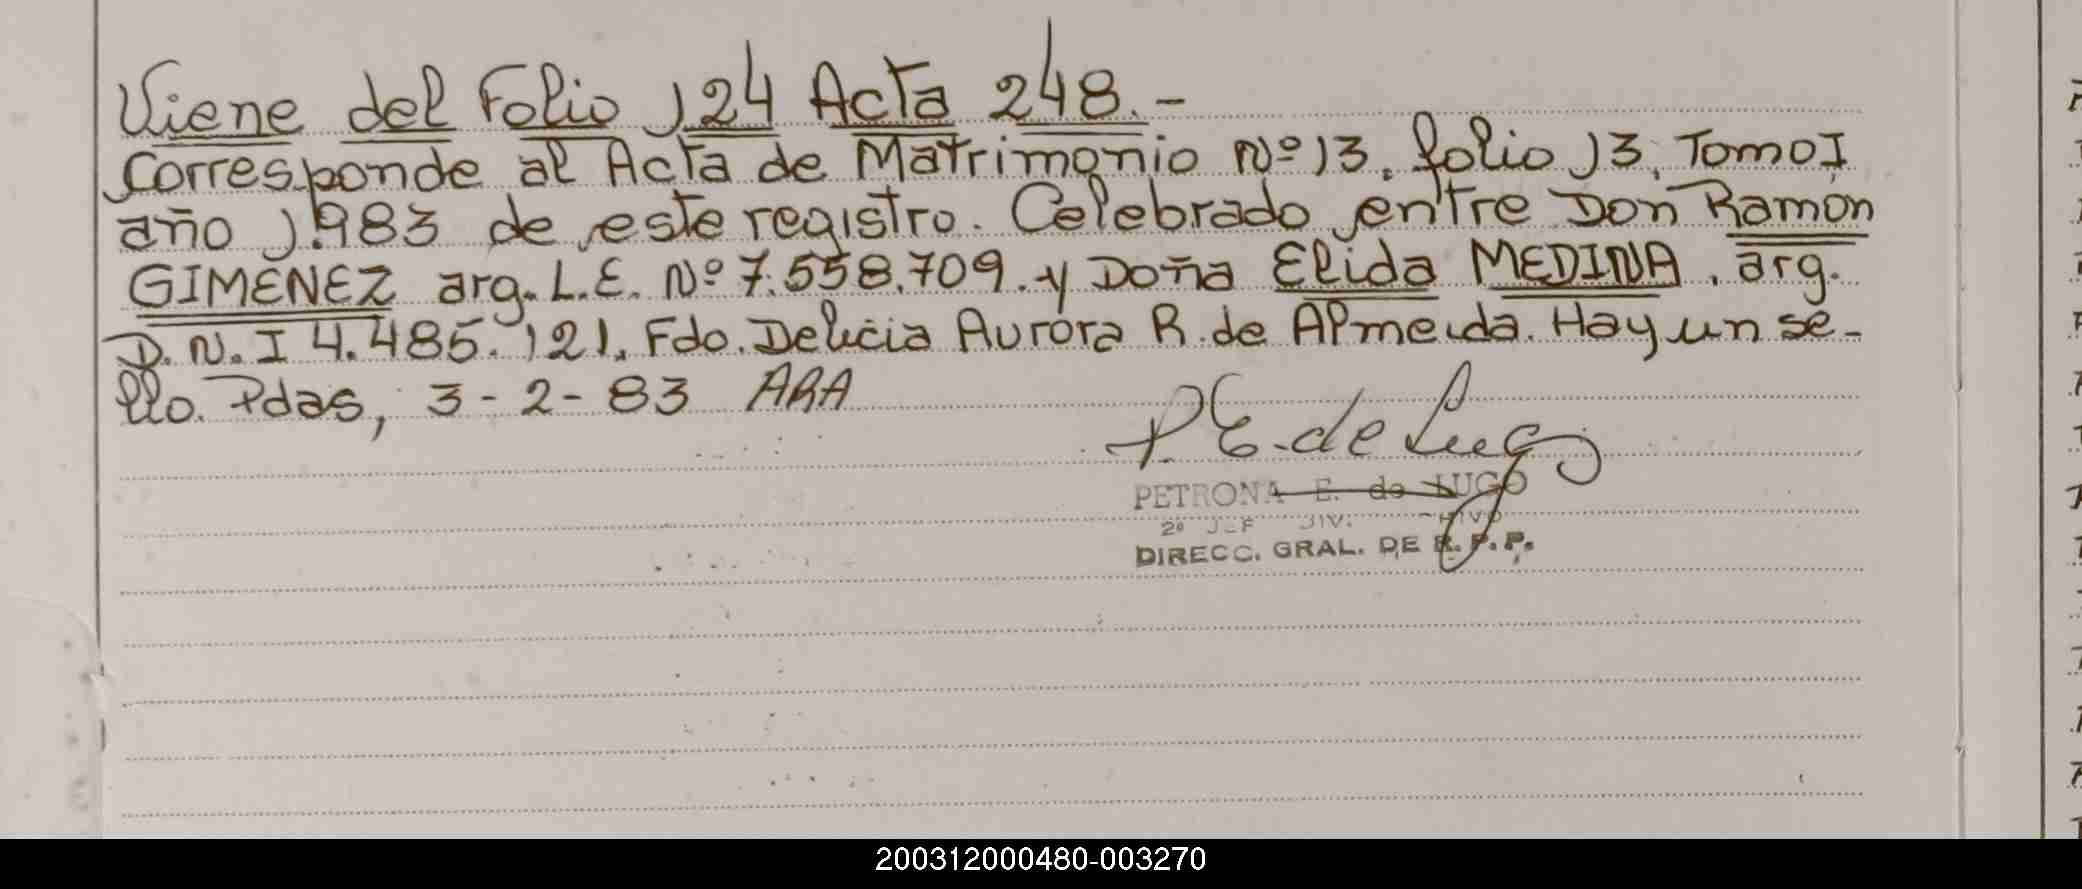 Viene del Folio 124 Acta 248.-
Corresponde al Acta de Matrimonio Nº 13. folio 13. Tomo I
año 1.983 de este registro. Celebrado entre Don Ramón
GIMENEZ arg. L.E. Nº 7.558.709. y Doña Elida MEDINA. arg.
D.N.I 4.485.121. Fdo. Delicia Aurora R. de Almeida. Hay un se-
llo. Pdas, 3-2-83 ARA
P.E. de Lugo
PETRONA E. de LUGO
2º JEF DIV.
DIRECC. GRAL. DE R.P.P.
200312000480-003270